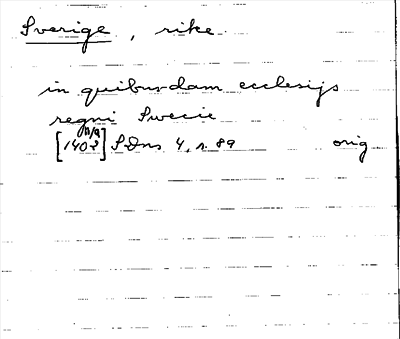 Sverige, rike
in quibusdam ecclesijs
regni Swecie
[1402] SDns 4, s. 89 orig